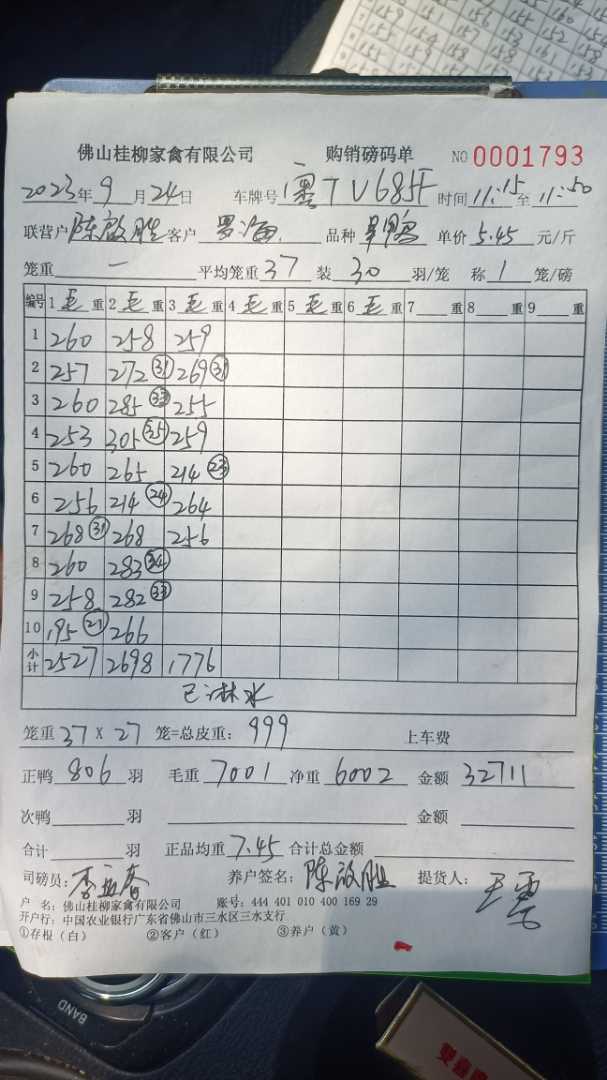 159 151 156 155 160 151
155 154 158 153 152 158
151 159 158 161 153
佛山桂柳家禽有限公司 购销磅码单 NO 0001793
2023年9月24日 车牌号 粤TV685F 时间 11:15 至 11:50
联营户 陈啟胜 客户 罗海 品种 单价 5.45 元/斤
笼重 一 平均笼重 37 装 30 羽/笼 称 1 笼/磅
编号 1 毛 重 2 毛 重 3 毛 重 4 毛 重 5 毛 重 6 毛 重 7 重 8 重 9 重
1 260 258 259
2 257 272 ㉛ 269 ㉛
3 260 285 ㉝ 255
4 253 305 ㉟ 259
5 260 265 214 ㉓
6 256 214 ㉔ 264
7 268 ㉛ 268 256
8 260 283 ㉞
9 258 282 ㉝
10 195 ㉑ 266
小计 2527 2698 1776
已淋水
笼重 37 X 27 笼=总皮重: 999 上车费
正鸭 806 羽 毛重 7001 净重 6002 金额 32711
次鸭 羽 金额
合计 羽 正品均重 7.45 合计总金额
司磅员: 养户签名: 陈啟胜 提货人:
户 名: 佛山桂柳家禽有限公司 账号: 444 401 010 400 169 29
开户行: 中国农业银行广东省佛山市三水区三水支行
①存根（白） ②客户（红） ③养户（黄）
BAND
雙喜